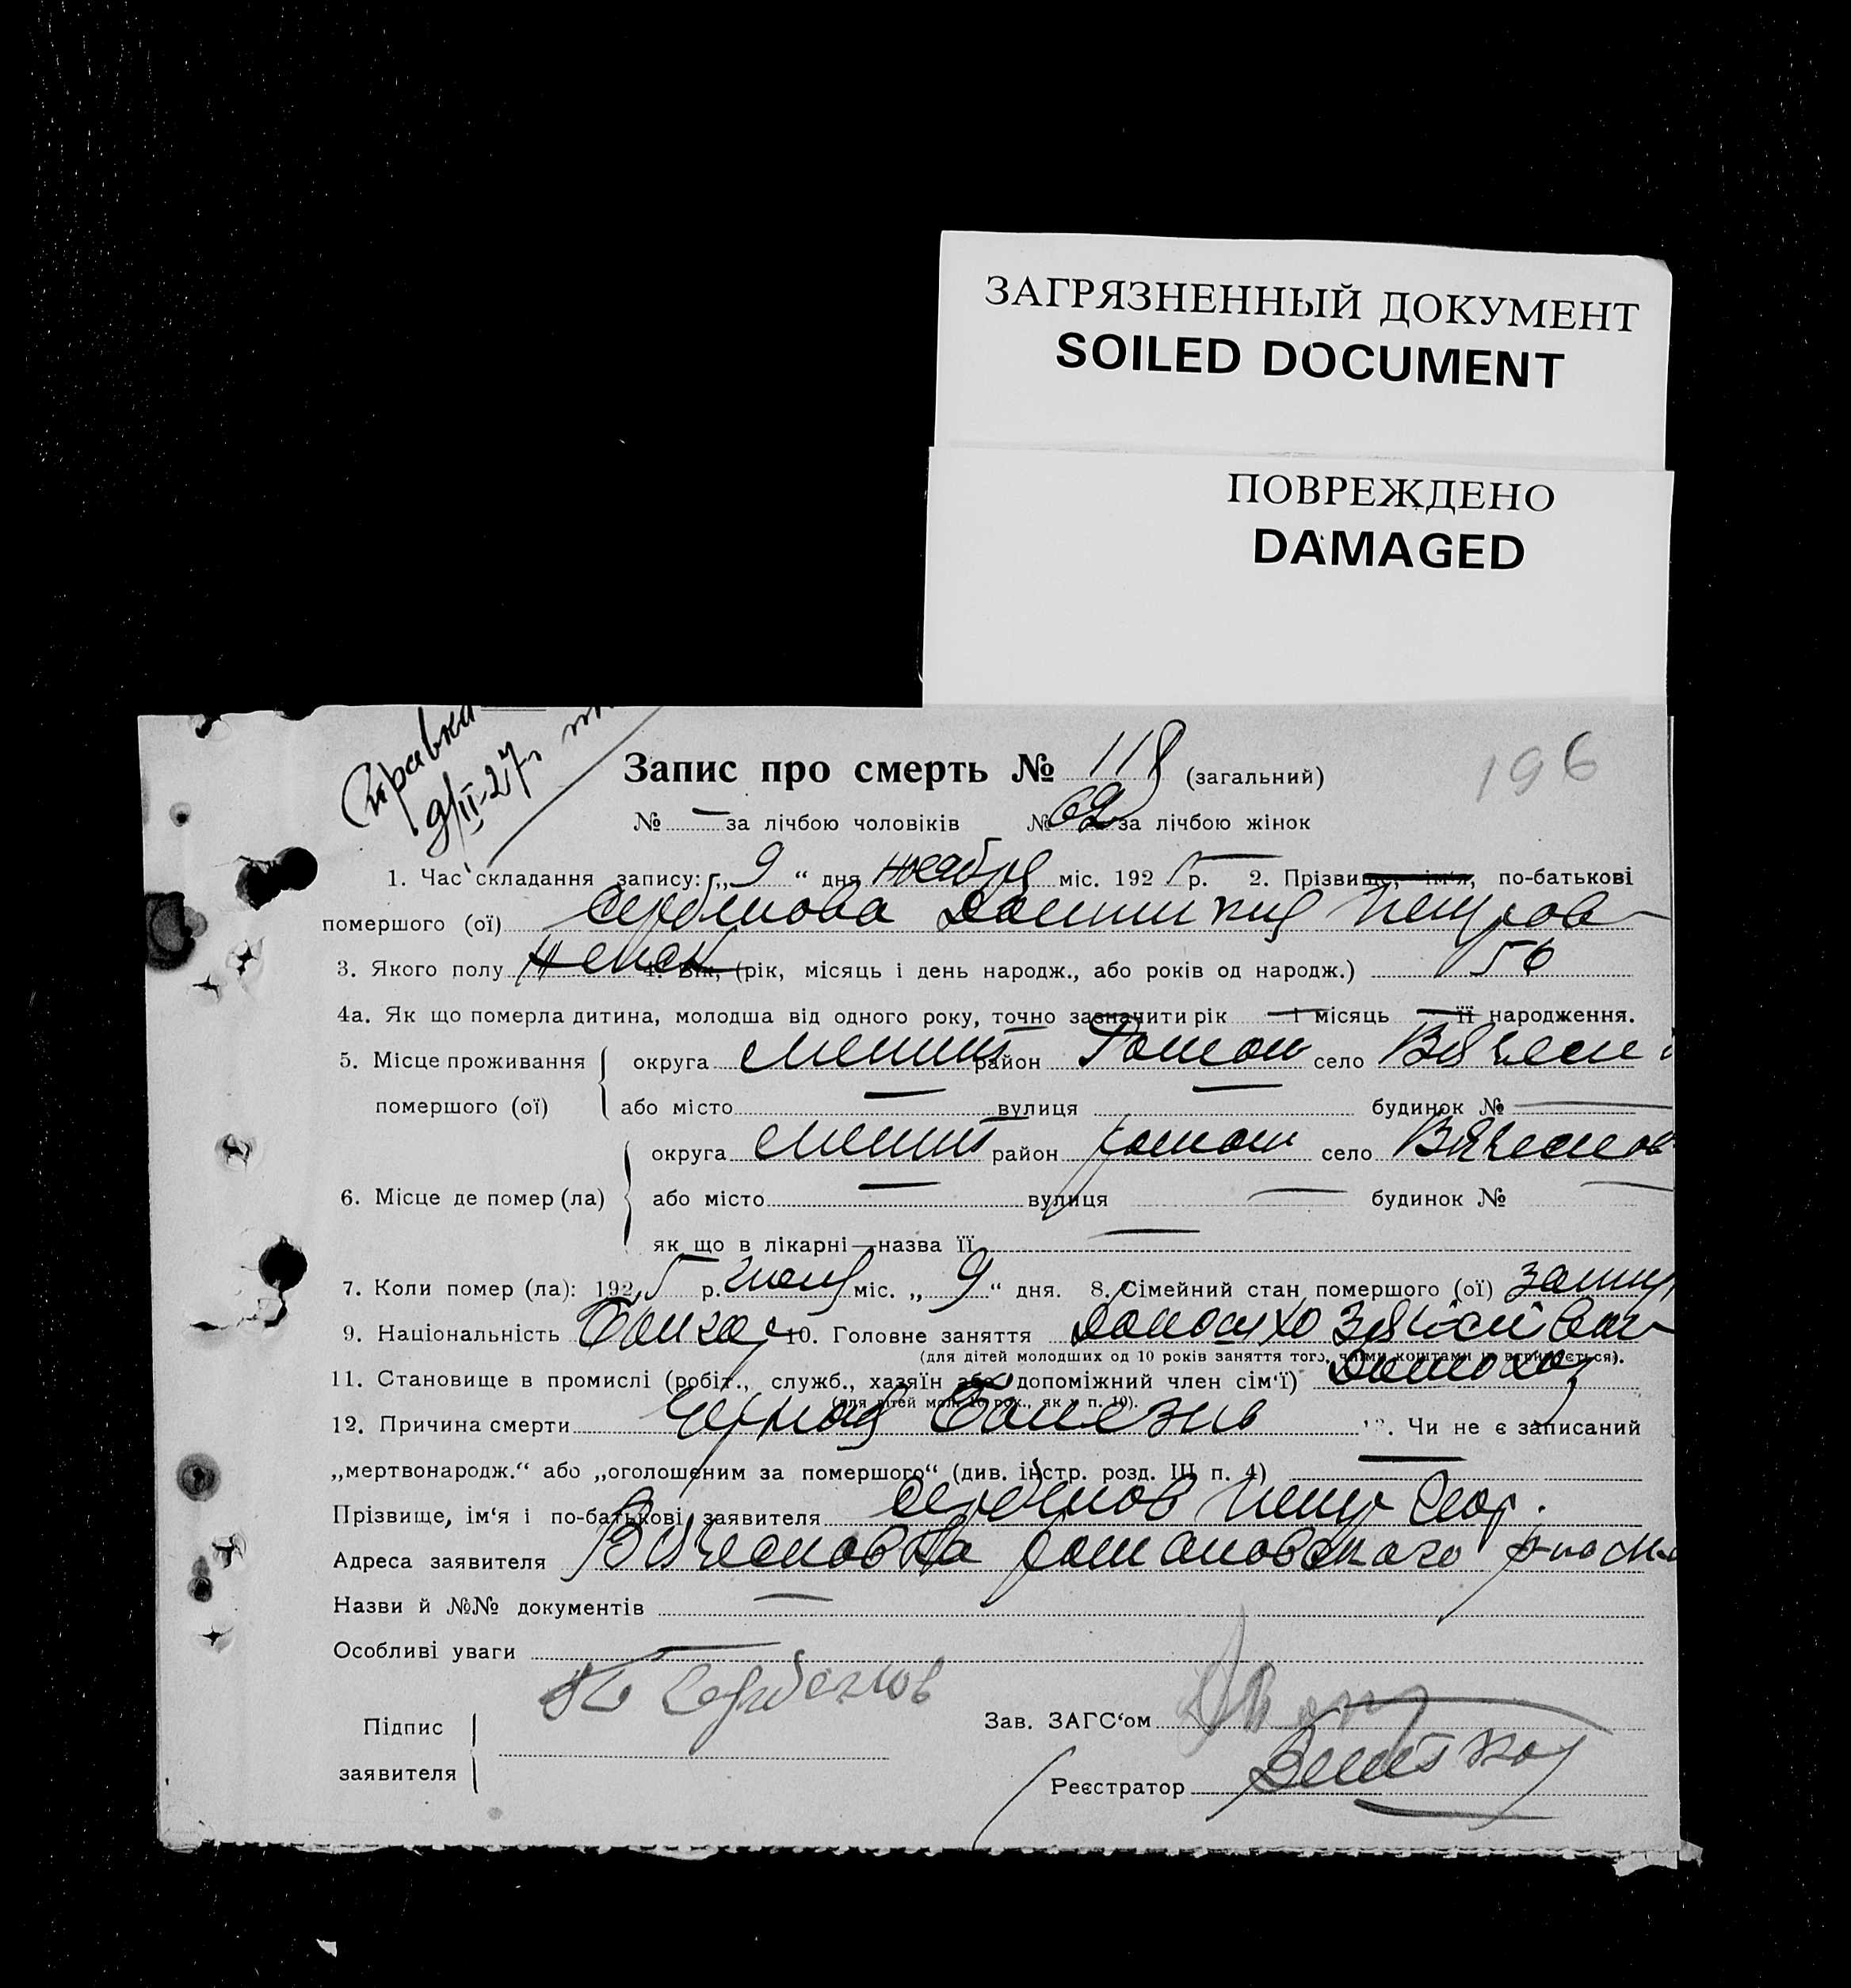 ЗАГРЯЗНЕННЫЙ ДОКУМЕНТ
SOILED DOCUMENT
ПОВРЕЖДЕНО
DAMAGED
Справка
9/II-27
Запис про смерть № 118 (загальний)
196
№ — за лічбою чоловіків № 62 за лічбою жінок
1. Час складання запису: „9“ дня ноября міс. 1925 р. 2. Прізвище, ім‘я, по-батькові
помершого (ої) Сербинова Петров
3. Якого полу женск 4. Вік, (рік, місяць і день народж., або років од народж.) 56
4а. Як що померла дитина, молодша від одного року, точно зазначити рік — і місяць — її народження.
5. Місце проживання округа Мелит район Роман село Вячесл
помершого (ої) або місто — вулиця — будинок № —
округа Мелит район роман село Вячеслов
6. Місце де помер (ла) або місто — вулиця — будинок № —
як що в лікарні—назва її —
7. Коли помер (ла): 1925 р. міс. „9“ дня. 8. Сімейний стан помершого (ої) замуж
9. Національність Болгар 10. Головне заняття домохозяйкой
(для дітей молодших од 10 років заняття того, чиїми коштами утримується).
11. Становище в промислі (робіт., служб., хазяїн або допоміжний член сім‘ї) Домохоз
(для дітей мол. 10 рок., як у п. 10).
12. Причина смерти Болезнь 13. Чи не є записаний
„мертвонародж.“ або „оголошеним за помершого“ (див. інстр. розд. III п. 4) —
Прізвище, ім‘я і по-батькові заявителя Сербинов Петр Геор.
Адреса заявителя Вячеславка романовского р-на
Назви й №№ документів —
Особливі уваги —
Підпис
заявителя
П Сербинов
Зав. ЗАГС‘ом
Реєстратор